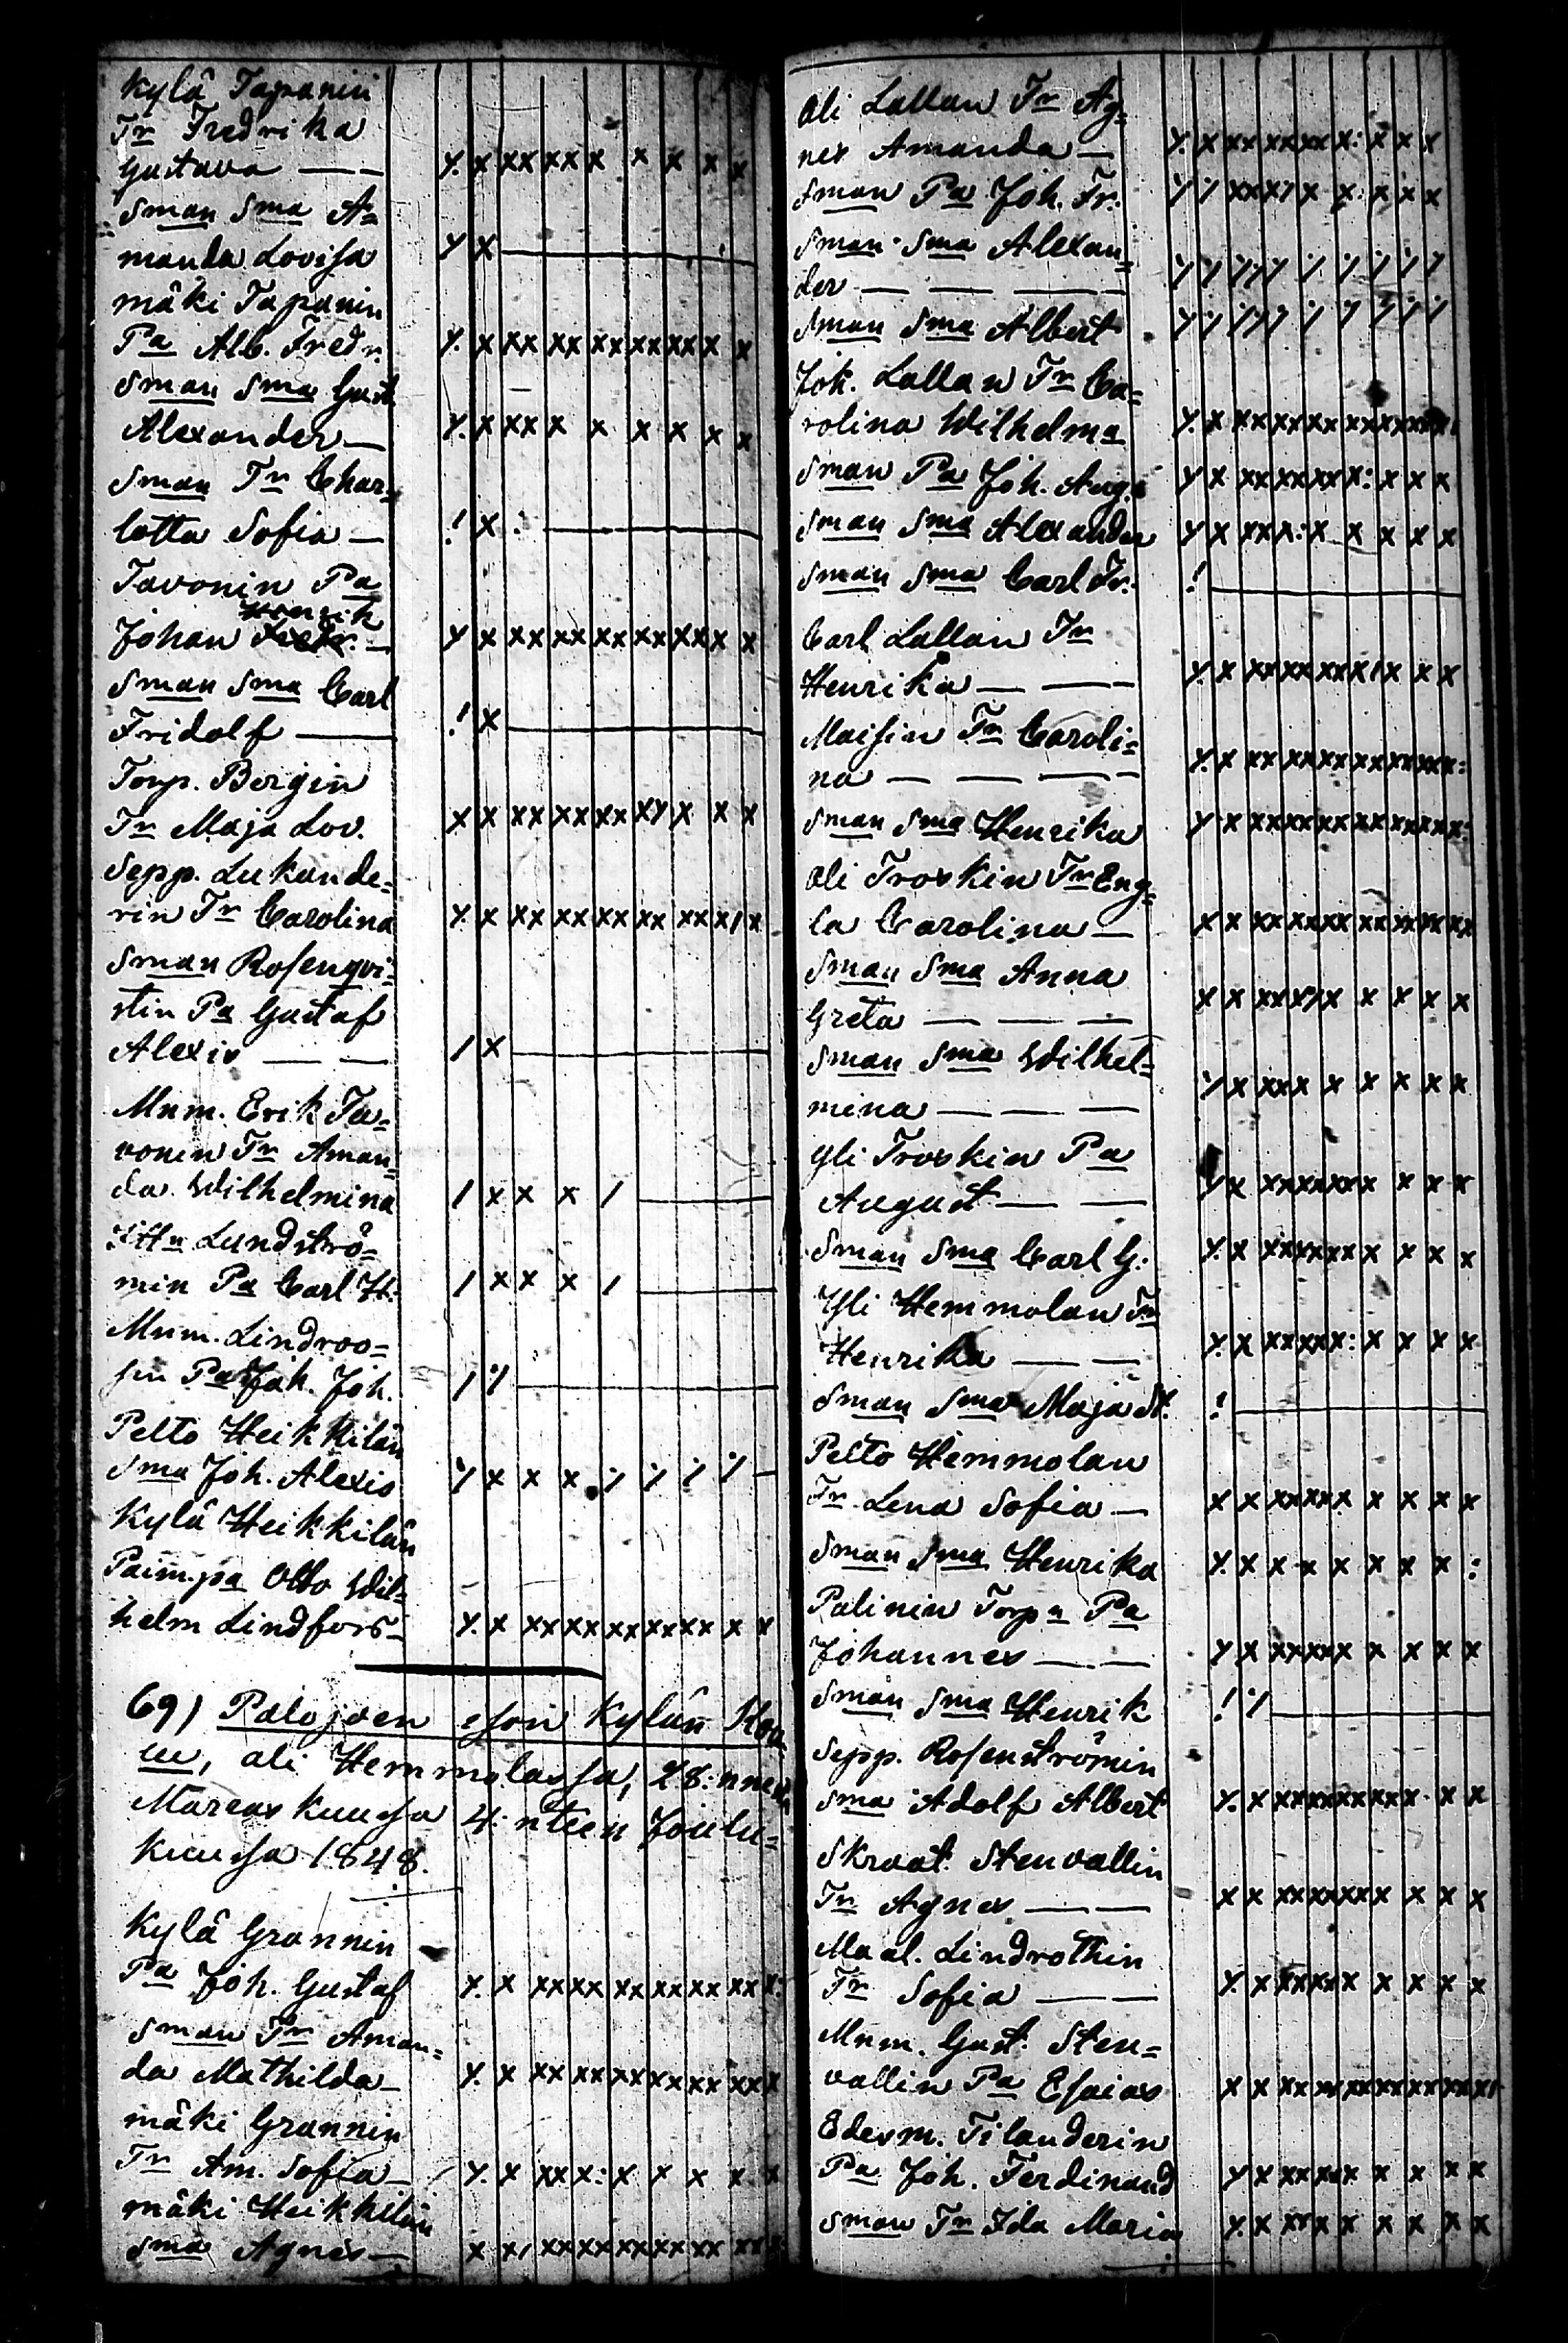 Kylä Tapanin
Tr Fredrika
Gustava — —
Sman Sma A=
manda Lovisa
mäki Tapanin
Pa Alb. Fredr.
Sman Sma Gust
Alexander —
Sman Tr Char=
lotta Sofia —
Tavonin Pa
Henrik
Johan Fredr. —
Sman Sma Carl
Fridolf —
Torp. Bergin
Tr Maja Lov.
Sepp. Lukande=
rin Tr Carolina
Sman Rosenqvi=
stin Pa Gustaf
Alexis — —
Mnm. Erik Ta=
vonen Tr Aman=
da Wilhelmina
Lundströ=
min Pa Carl H.
Mnm. Lindroo=
sin Pa Joh. Joh.
Pelto Heikkilän
Sma Joh. Alexis
Kylä Heikkilän
Paim.pa Otto Wil=
helm Lindfors —
69) Palojoen eson Kylän Kou
lu, ali Hemmolassa, 28:nnen
Marraskuussa 4:nteen Joulu=
kuussa 1848.
Kylä Grannin
Pa Joh. Gustaf
Sman Tr Aman=
da Mathilda —
mäki Grannin
Tr Am. Sofia —
mäki Heikkilän
Sma Agnes —
Ali Lallan Tr Ag=
nes Amanda —
Sman Pa Joh. Fr.
Sman Sma Alexan=
der — — —
Sman Sma Albert
Joh. Lallan Tr Ca=
rolina Wilhelma
Sman Pa Joh. Aug.
Sman Sma Alexander
Sman Sma Carl Fr.
Carl Lallan Tr
Henrika — —
Maisin Tr Caroli=
na — — —
Sman Sma Henrika
Ali Troskin Tr Eng=
la Carolina —
Sman Sma Anna
Greta — — —
Sman Sma Wilhel=
mina — — —
Yli Troskin Pa
August — —
Sman Sma Carl G.
Yli Hemmolan Tr
Henrika — —
Sman Sma Maja St.
Pelto Hemmolan
Tr Lena Sofia —
Sman Sma Henrika
Palinin Torp Pa
Johannes — —
Sman Sma Henrik
Sepp. Rosenströmin
Sma Adolf Albert
Skraat. Stenvallin
Tr Agnes — —
Maal. Lindrothin
Tr Sofia — —
Mnm. Gust. Sten=
vallin Pa Esaias
Edesm. Tilanderin
Pa Joh. Ferdinand
Sman Tr Ida Maria